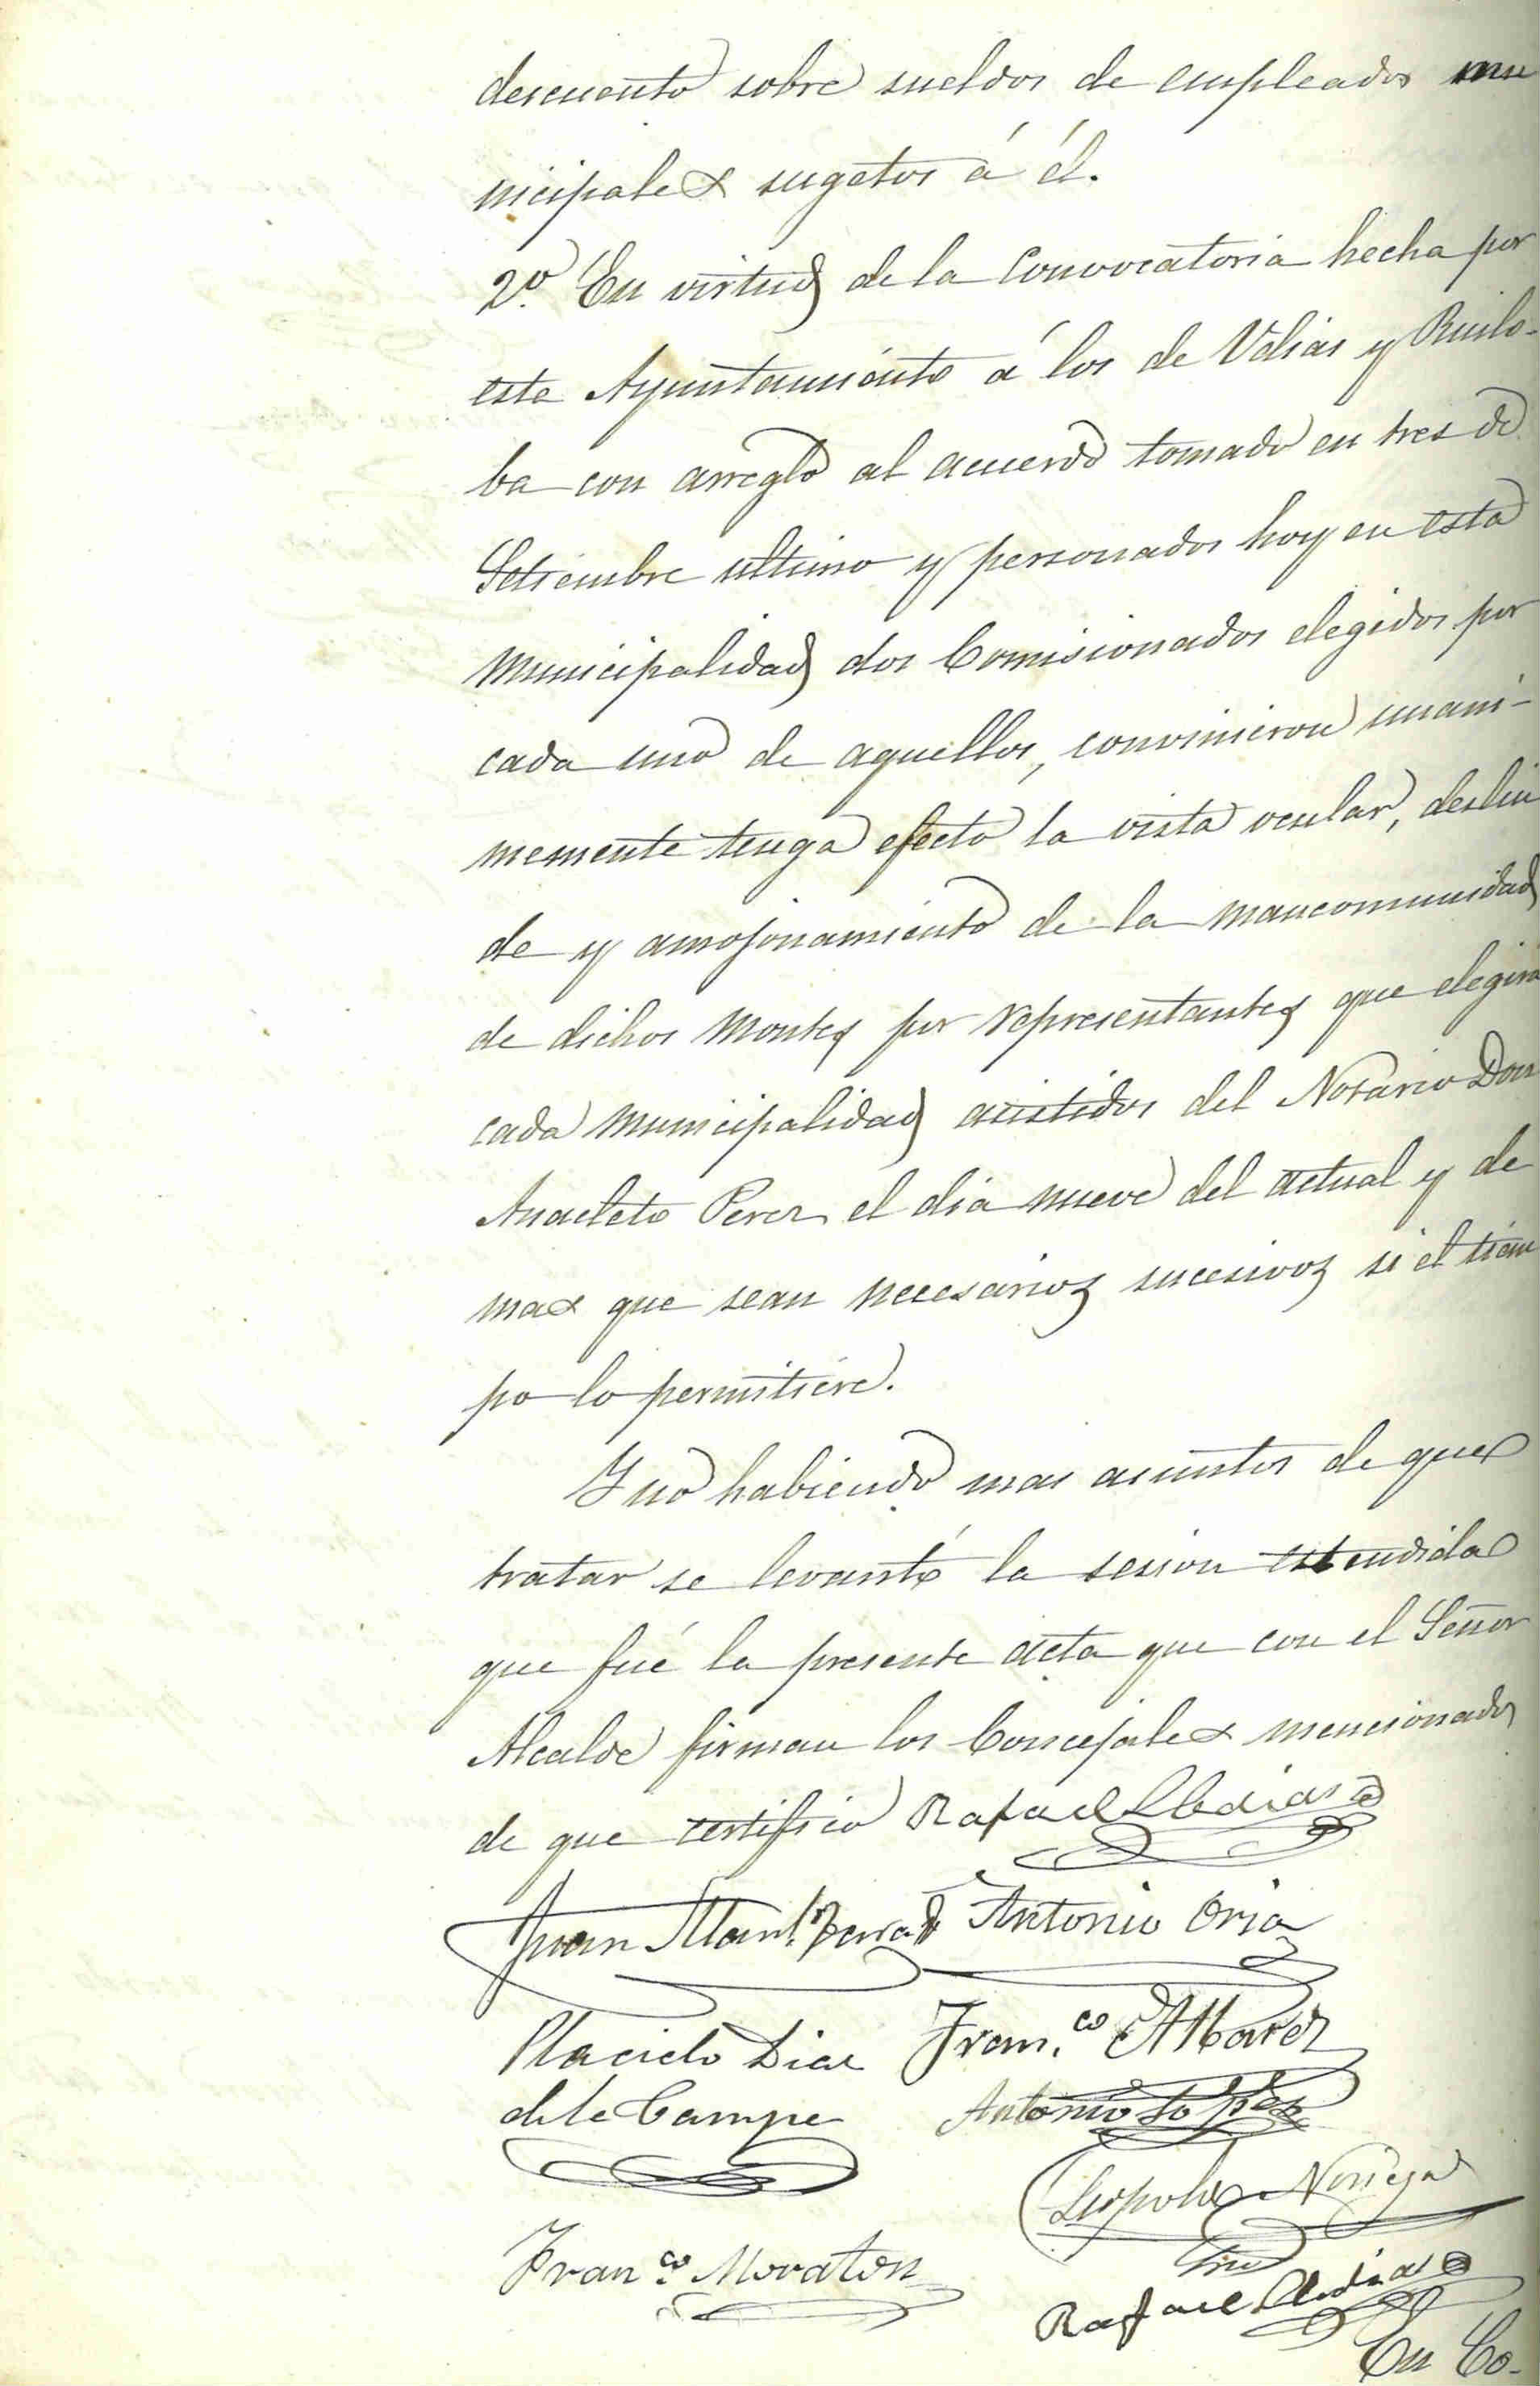 descuento sobre sueldos de empleados mu
nicipales sugetos á él.
2º En virtud de la Convocatoria hecha por
este Ayuntamiento á los de Udias y Ruilo-
ba con arreglo al acuerdo tomado en tres de
Setiembre ultimo y personados hoy en esta
Municipalidad dos Comisionados elegidos por
cada uno de aquellos, convinieron unani-
memente tenga efecto la vista ocular, deslin
de y amojonamiento de la mancomunidad
de dichos Montes por representantes que elegirá
cada Municipalidad asistidos del Notario Don
Anacleto Perez el dia nueve del actual y de
mas que sean necesarios sucesivos si el tiem
po lo permitiere.
Y no habiendo mas asuntos de que
tratar se levantó la sesion estendida
que fué la presente acta que con el Señor
Alcalde firman los Concejales mencionados
de que certifico Rafael
Juan Antonio Oria
Placido Diaz Fran.co Alvarez
de la Campa Antonio Lopez
Leopoldo Noriega
Fran.co Moraton
Rafael
En Co-